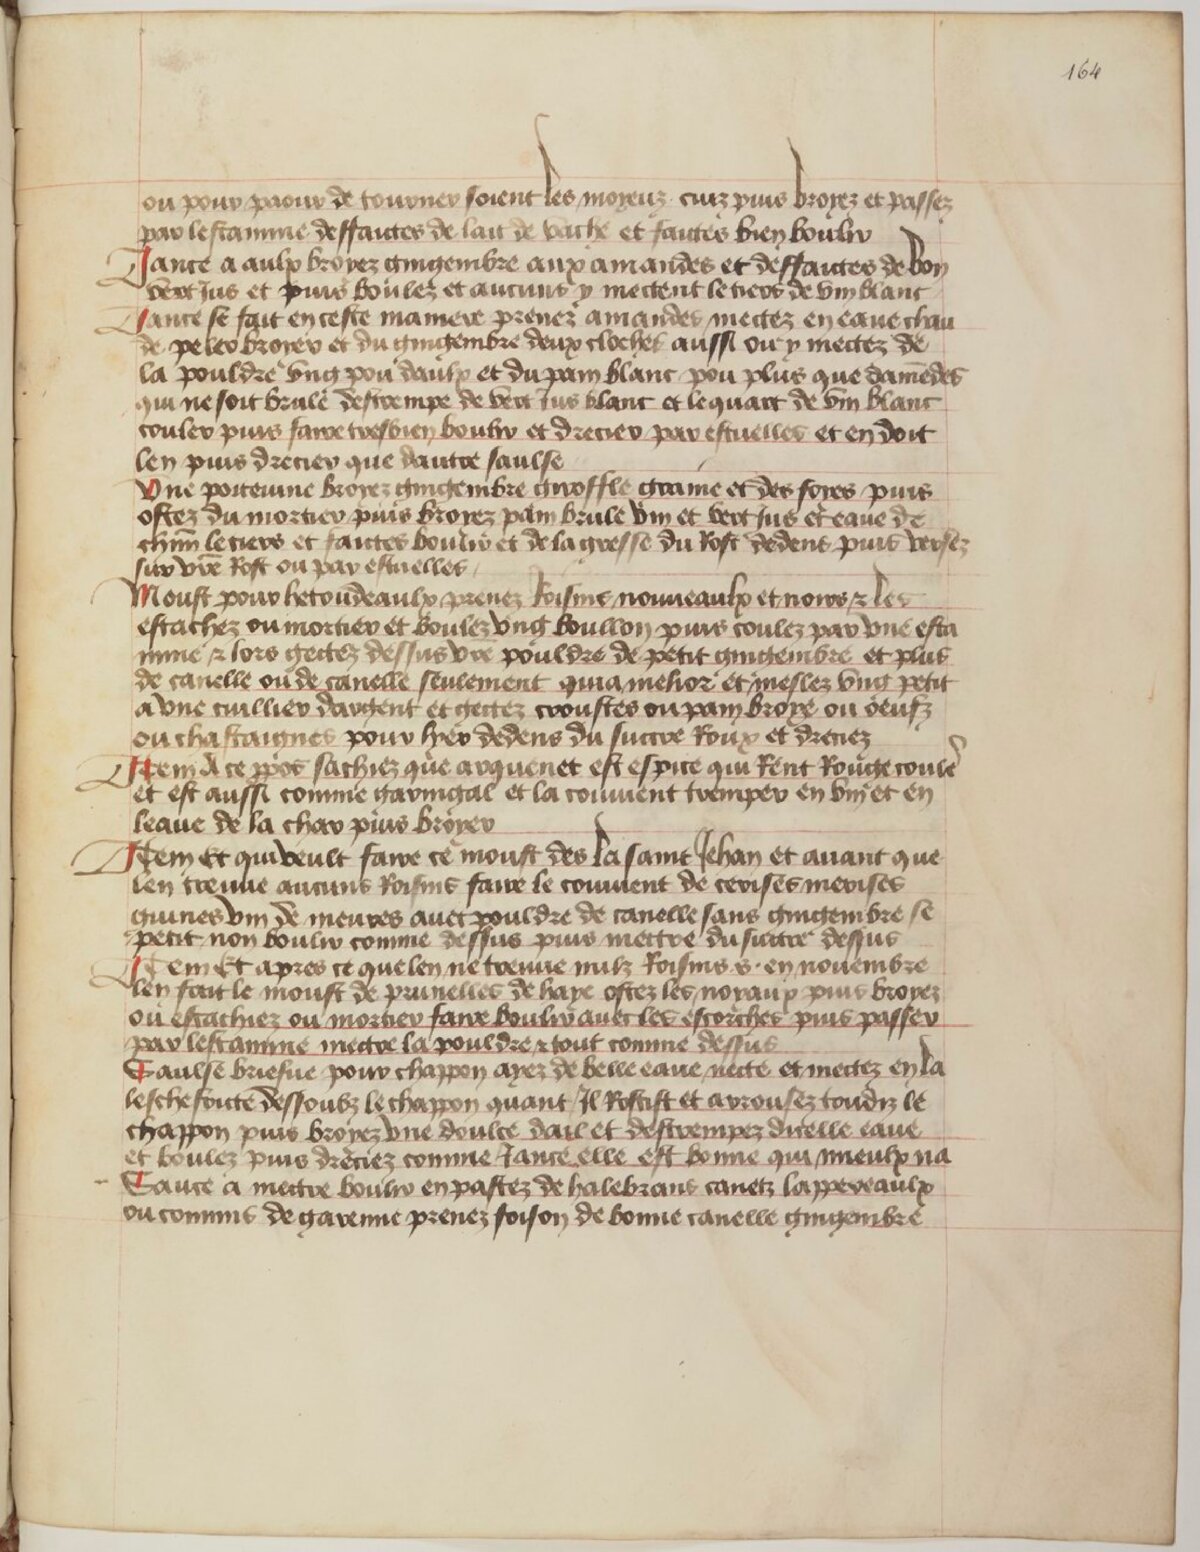 164
ou pour paour de tourner soient les moyeuz cuiz puis broyez et passez
par lestamine deffaictes de lait de vache et faictes bien boulir
Jance a aulx broyez gingembre aulx amandes et deffaictes de bon
vert jus et puis boulez et aucuns y mectent le tiers de vin blanc
Jance se fait en ceste maniere prenez amandes mectez en eaue chau
de peler broyer et du gingembre deux cloches aussi ou y mectez de
la pouldre ung pou daulx et du pain blanc pou plus que damendes
qui ne soit brulé destrempe de vert jus blanc et le quart de vin blanc
couler puis faire tresbien boulir et drecier par escuelles et en doit
len puis drecier que dautre saulse
Une poitevine broyez gingembre giroffle graine et des foyes puis
ostez du mortier puis broyez pain brule vin et vert jus et eaue de
chūn le tiers et faictes boulir et de la gresse du Rost dedens puis versez
sur vr̄e Rost ou par escuelles
Moust pour hetoudeaulx prenez Roisins nouveaulx et noirs & les
escachez ou mortier et boulez ung boullon puis coulez par une esta
mine & lors gectez dessus vr̄e pouldre de petit gingembre et plus
de canelle ou de canelle seulement quia melior et meslez ung petit
a une cuillier dargent et gectez croustes ou pain broyé ou oeufz
ou chastaignes pour lyer dedens du succre Roux et drecez
Item A ce ppos sachiez que arquenet est espice qui Rent Rouge coulr
et est aussi comme garingal et la convient tremper en vin et en
leaue de la char puis broyer
Item Et qui veult faire ce moust des la saint Jehan et avant que
len treuve aucuns Roisins faire le convient de cerises merises
guines vin de meures avec pouldre de canelle sans gingembre se
petit non boulir comme dessus puis mettre du succre dessus
Item Et apres ce que len ne treuve nulz Roisins .s. en novembre
len fait le moust de prunelles de haye ostez les noyaux puis broyez
ou escachiez ou mortier faire boulir avec les escorches puis passer
par lestamine mectre la pouldre & tout comme dessus
Saulse briefve pour chappon ayez de belle eaue necte et mectez en la
leschefoicte dessoubz le chappon quant Il Rostist et arrousez toudiz le
chappon puis broyez une doulce dail et destrempez dicelle eaue
et boulez puis dreciez comme Jance elle est bonne qui mieulx na
Sauce a mectre boulir en pastez de halebrans canetz lappereaulx
ou connins de garenne prenez foison de bonne canelle gingembre